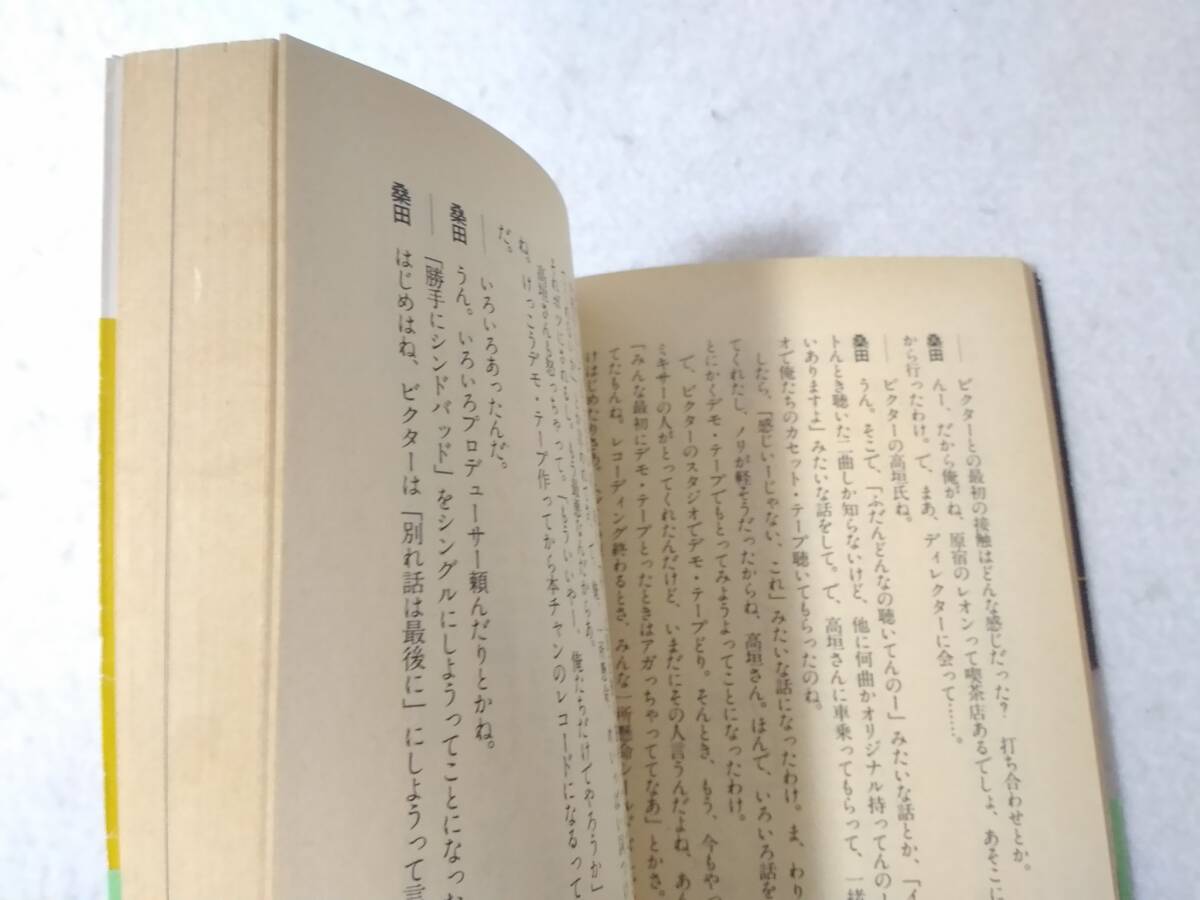 ―― ビクターとの最初の接触はどんな感じだった? 打ち合わせとか。
桑田 んー、だから俺がね、原宿のレオンって喫茶店あるでしょ、あそこに
から行ったわけ。で、まあ、ディレクターに会って……。
―― ビクターの高垣氏ね。
桑田 うん。そこで、「ふだんどんなの聴いてんのー」みたいな話とか、「イ
トんとき聴いた二曲しか知らないけど、他に何曲かオリジナル持ってんの
いありますよ」みたいな話をして。で、高垣さんに車乗ってもらって、一緒
オで俺たちのカセット・テープ聴いてもらったのね。
したら、「感じいーじゃない、これ」みたいな話になったわけ。ま、わり
てくれたし、ノリが軽そうだったからね、高垣さん。ほんで、いろいろ話を
とにかくデモ・テープでもとってみようよってことになったわけ。
で、ビクターのスタジオでデモ・テープどり。そんとき、もう、今もやっ
ミキサーの人がとってくれたんだけど、いまだにその人言うんだよね、あん
「みんな最初にデモ・テープとったときはアガっちゃっててなあ」とかさ。
てたもんね。レコーディング終わるとき、みんな一所懸命シールド
けはじめたりさあ、
高垣さんも怒っちゃって。「もういいやー、俺たちだけでやろうか」
ね。けっこうデモ・テープ作ってから本チャンのレコードになるって
だ。
―― いろいろあったんだ。
桑田 うん。いろいろプロデューサー頼んだりとかね。
―― 「勝手にシンドバッド」をシングルにしようってことになった
桑田 はじめはね、ビクターは「別れ話は最後に」にしようって言